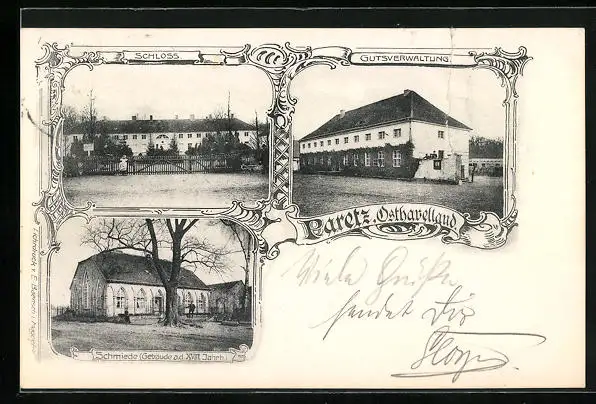 SCHLOSS
GUTSVERWALTUNG.
Paretz, Osthavelland
Schmiede (Gebäude a.d. XVIII. Jahrh.)
Lichtdruck v. E.
Viele Grüße
sendet Dir